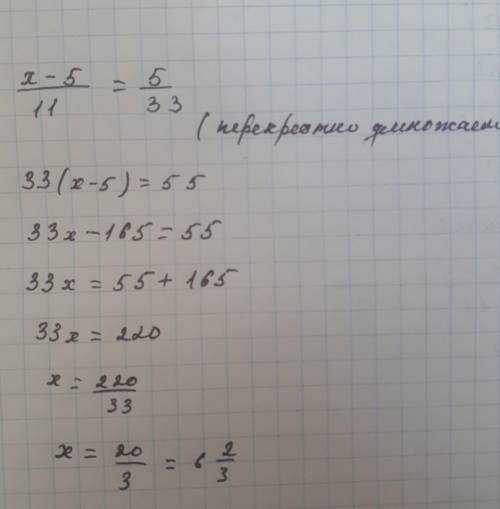 x - 5 / 11 = 5 / 33
( перекрестно умножаем
33(x-5) = 55
33x - 165 = 55
33x = 55 + 165
33x = 220
x = 220 / 33
x = 20 / 3 = 6 2/3